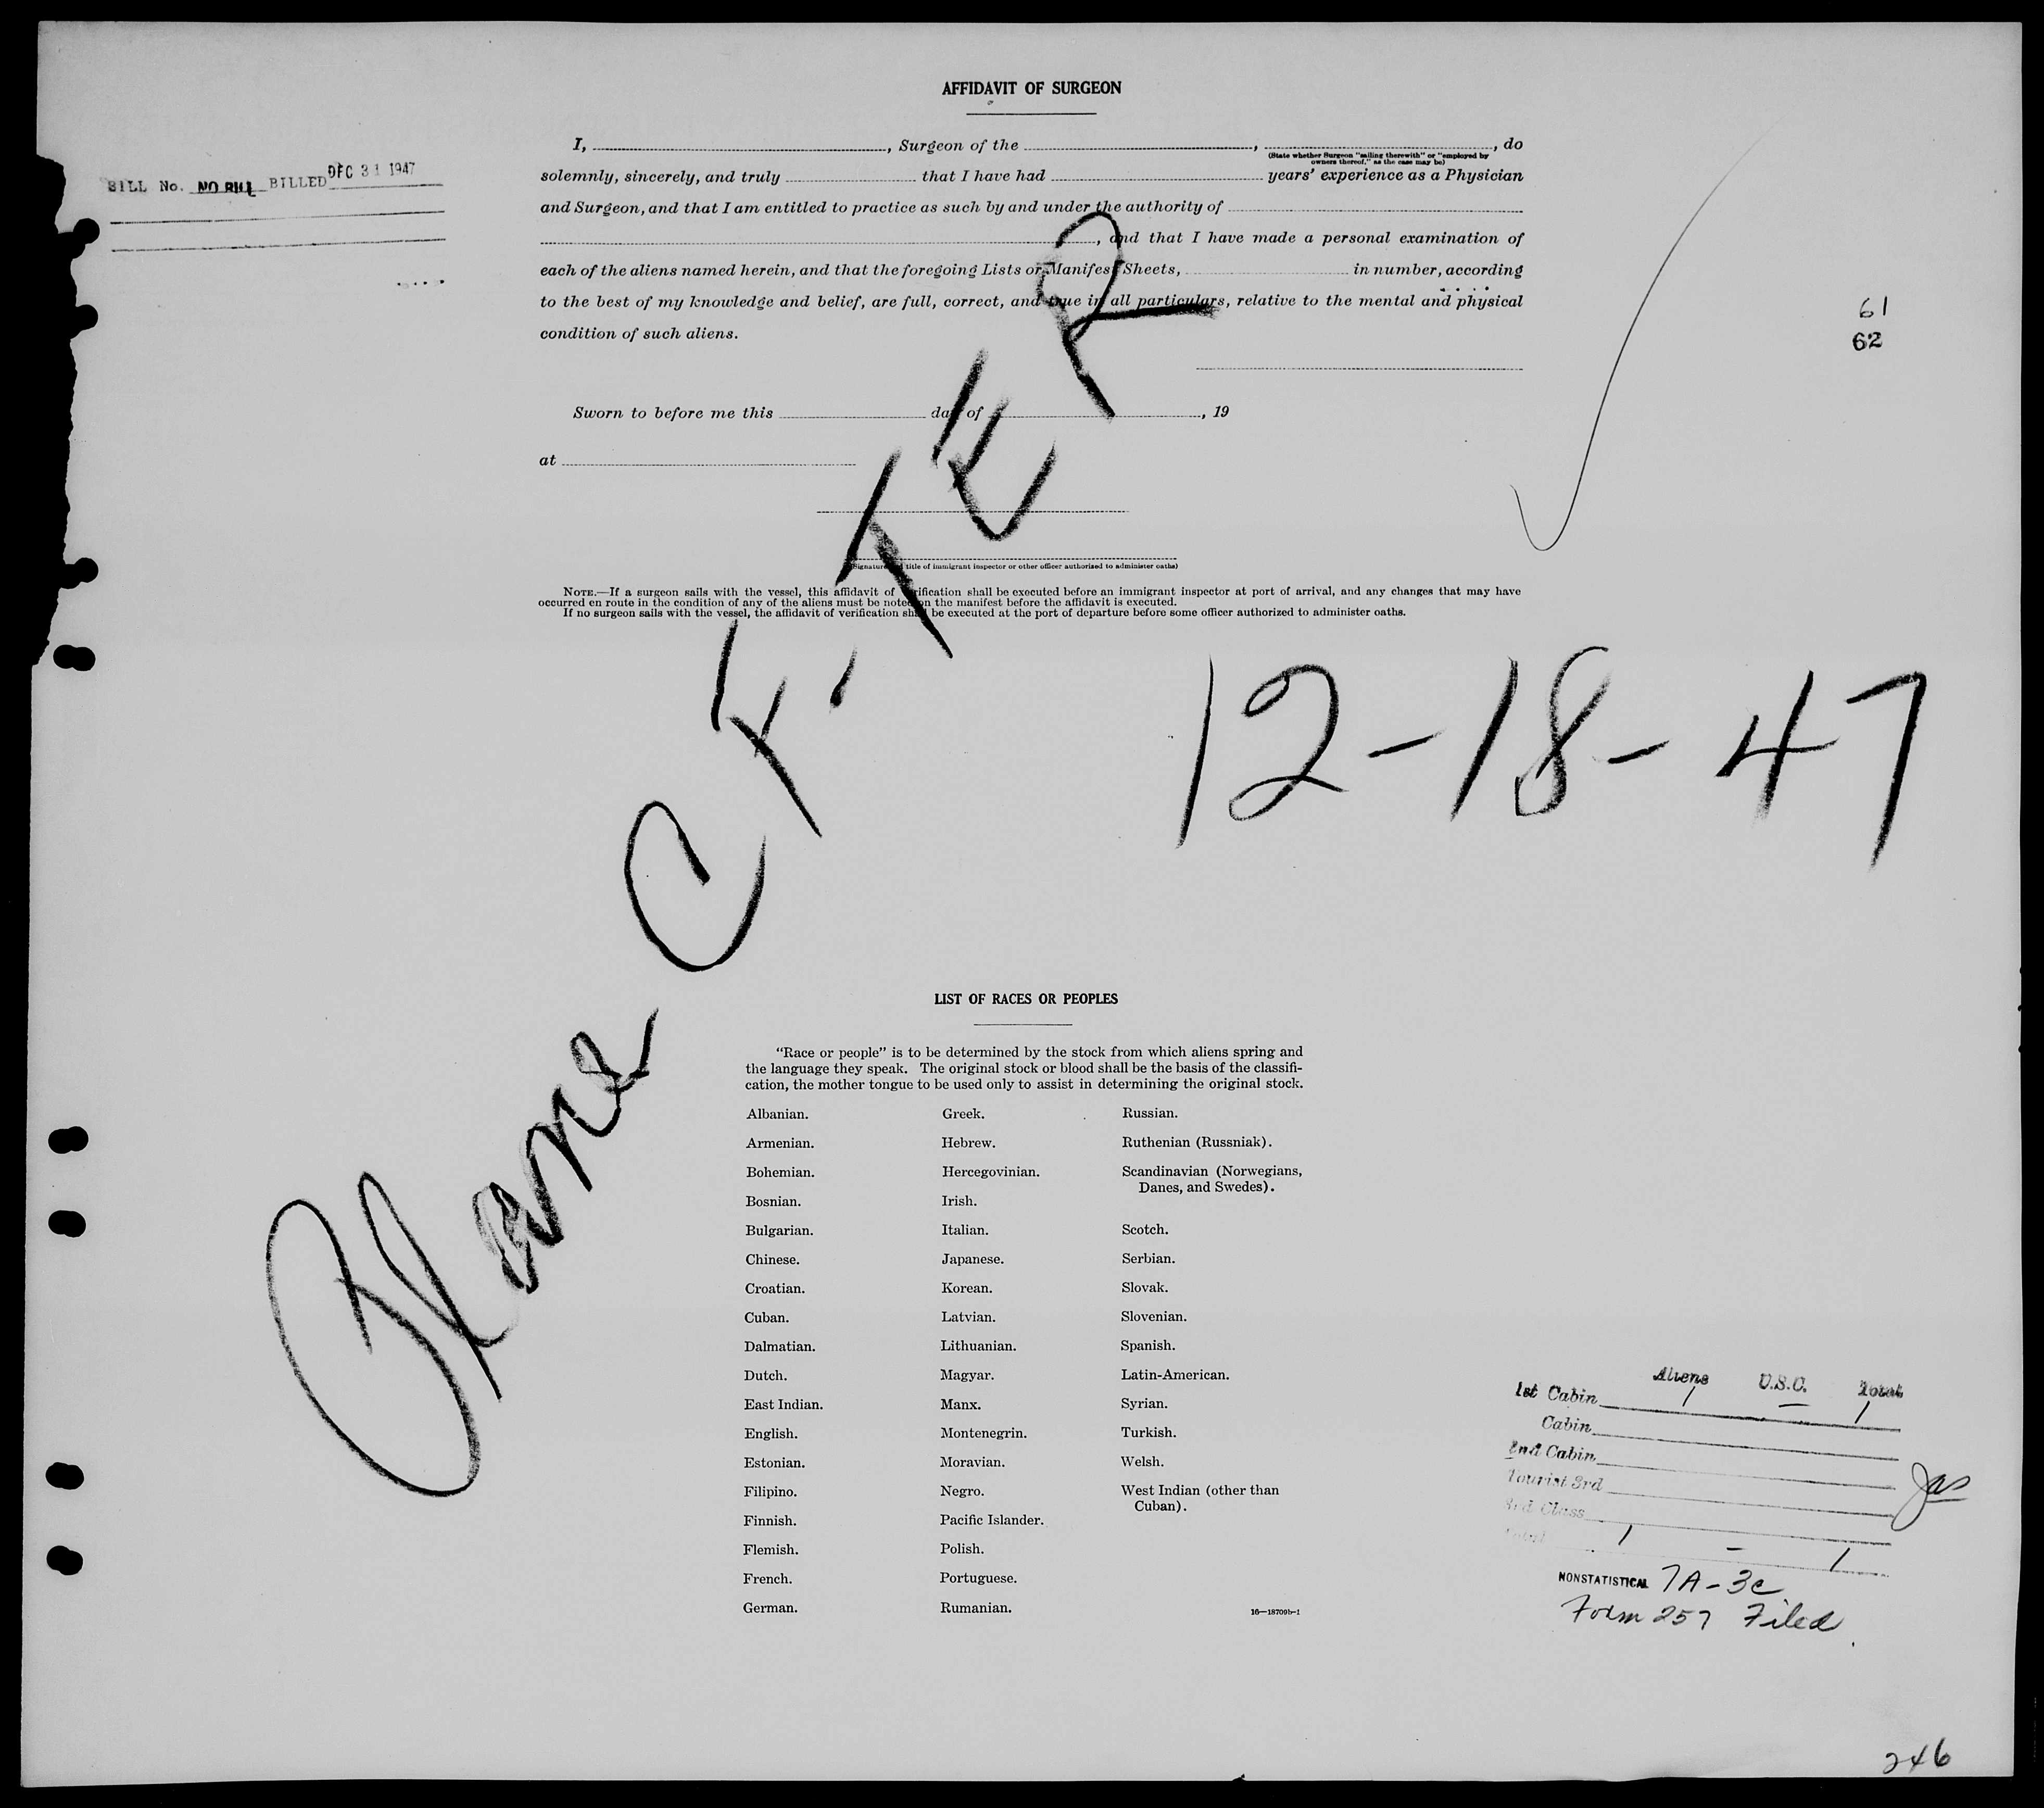 AFFIDAVIT OF SURGEON
BILL No. NO BILL BILLED DEC 31 1947
I, , Surgeon of the , , do
(State whether Surgeon "sailing therewith" or "employed by
owners thereof," as the case may be)
solemnly, sincerely, and truly that I have had years' experience as a Physician
and Surgeon, and that I am entitled to practice as such by and under the authority of
, and that I have made a personal examination of
each of the aliens named herein, and that the foregoing Lists or Manifest Sheets, in number, according
to the best of my knowledge and belief, are full, correct, and true in all particulars, relative to the mental and physical
condition of such aliens.
61
62
Sworn to before me this day of , 19
at
(Signature and title of immigrant inspector or other officer authorized to administer oaths)
NOTE.—If a surgeon sails with the vessel, this affidavit of verification shall be executed before an immigrant inspector at port of arrival, and any changes that may have
occurred en route in the condition of any of the aliens must be noted on the manifest before the affidavit is executed.
If no surgeon sails with the vessel, the affidavit of verification shall be executed at the port of departure before some officer authorized to administer oaths.
12-18-47
LIST OF RACES OR PEOPLES
"Race or people" is to be determined by the stock from which aliens spring and
the language they speak. The original stock or blood shall be the basis of the classifi-
cation, the mother tongue to be used only to assist in determining the original stock.
Albanian. Greek. Russian.
Armenian. Hebrew. Ruthenian (Russniak).
Bohemian. Hercegovinian. Scandinavian (Norwegians,
Danes, and Swedes).
Bosnian. Irish.
Bulgarian. Italian. Scotch.
Chinese. Japanese. Serbian.
Croatian. Korean. Slovak.
Cuban. Latvian. Slovenian.
Dalmatian. Lithuanian. Spanish.
Dutch. Magyar. Latin-American.
East Indian. Manx. Syrian.
English. Montenegrin. Turkish.
Estonian. Moravian. Welsh.
Filipino. Negro. West Indian (other than
Cuban).
Finnish. Pacific Islander.
Flemish. Polish.
French. Portuguese.
German. Rumanian. 16—18709b-1
Plane CF-TER
Aliens U.S.C. Total
1st Cabin 1 — 1
Cabin
2nd Cabin
Tourist 3rd
3rd Class
Total 1 — 1
Jas
NONSTATISTICAL 7A-3c
Form 257 Filed
246